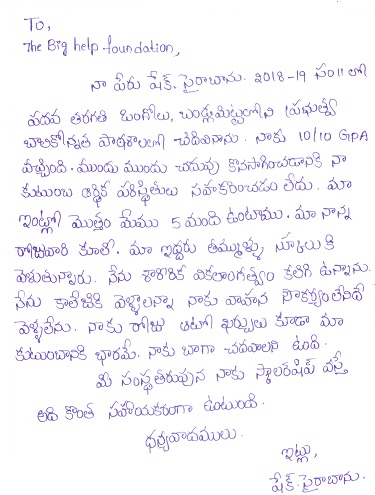 To,
The Big help foundation,
నా పేరు షేక్. సైరాబాను. 2018-19 సం॥ లో
పదవ తరగతి ఒంగోలు, బండ్లమిట్టలోని ప్రభుత్వ
బాలికోన్నత పాఠశాలలో చదివినాను. నాకు 10/10 GPA
వచ్చింది. ముందు ముందు చదువు కొనసాగించడానికి నా
కుటుంబ ఆర్థిక పరిస్థితులు సహకరించడం లేదు. మా
ఇంట్లో మొత్తం మేము 5 మంది ఉంటాము. మా నాన్న
రోజువారి కూలీ. మా ఇద్దరు తమ్ముళ్ళు స్కూలు కి
వెళుతున్నారు. నేను శారీరిక వికలాంగత్వం కలిగి ఉన్నాను.
నేను కాలేజికి వెళ్ళాలన్నా నాకు వాహన సౌకర్యం లేనిదే
వెళ్ళలేను. నాకు రోజు ఆటో ఖర్చులు కూడా మా
కుటుంబానికి భారమే. నాకు బాగా చదవాలని ఉంది.
మీ సంస్థ తరుపున నాకు స్కాలర్‌షిప్ వస్తే
అది కొంత సహాయకరంగా ఉంటుంది.
ధన్యవాదములు.
ఇట్లు,
షేక్. సైరాబాను.